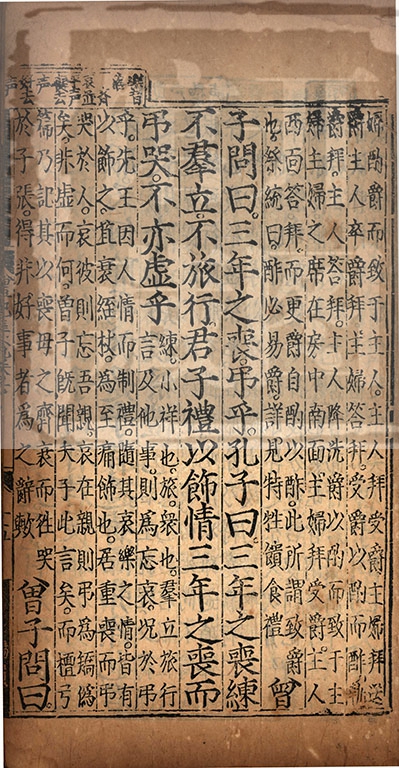 婦酌爵而致于主人。主人拜受爵主婦拜送
爵主人卒爵拜主婦答拜。受爵以酌而酢
爵拜。主人答拜。主人降洗爵以酌而致于主
婦主婦之席在房中南面主婦拜受爵。主人
西面答拜。而更爵自酌以酢。此所謂致爵
也。祭統曰。酢必易爵。詳見特牲饋食禮
曾
子問曰。三年之喪。弔乎。孔子曰。三年之喪練
不羣立。不旅行。君子禮以飾情三年之喪而
弔哭。不亦虛乎
練小祥也。旅衆也。羣立旅行
言及他事。則爲忘哀。况於弔
乎。先王因人情而制禮隨其哀樂之情。皆有
以飾之。苴衰絰杖。爲至痛飾也。居重喪而弔
哭於人。哀彼則忘吾親。哀在親則弔爲矯僞
矣。非虛而何。曾子旣聞夫子此言矣。而檀弓
篇乃記其以喪母之齊衰而徃哭
於子張。得非好事者爲之辭歟
曾子問曰。
樂音